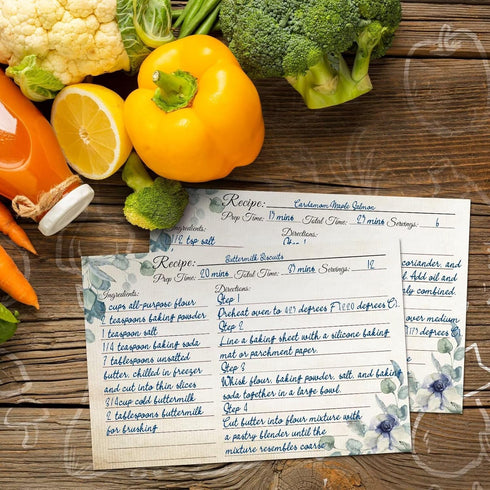 Recipe: Cardamom Maple Salmon
Prep Time: 15 mins Total Time: 29 mins Servings: 6
Ingredients:
Directions:
1/2 tsp salt
Step 1
coriander, and
Add oil and
ly combined.
over medium
degrees
Recipe: Buttermilk Biscuits
Prep Time: 20 mins Total Time: Servings: 12
Ingredients:
2 cups all-purpose flour
2 teaspoons baking powder
1 teaspoon salt
1/4 teaspoon baking soda
7 tablespoons unsalted
butter, chilled in freezer
and cut into thin slices
3/4cup cold buttermilk
2 tablespoons buttermilk
for brushing
Directions:
Step 1
Preheat oven to 425 degrees F (220 degrees C).
Step 2
Line a baking sheet with a silicone baking
mat or parchment paper.
Step 3
Whisk flour, baking powder, salt, and baking
soda together in a large bowl.
Step 4
Cut butter into flour mixture with
a pastry blender until the
mixture resembles coarse